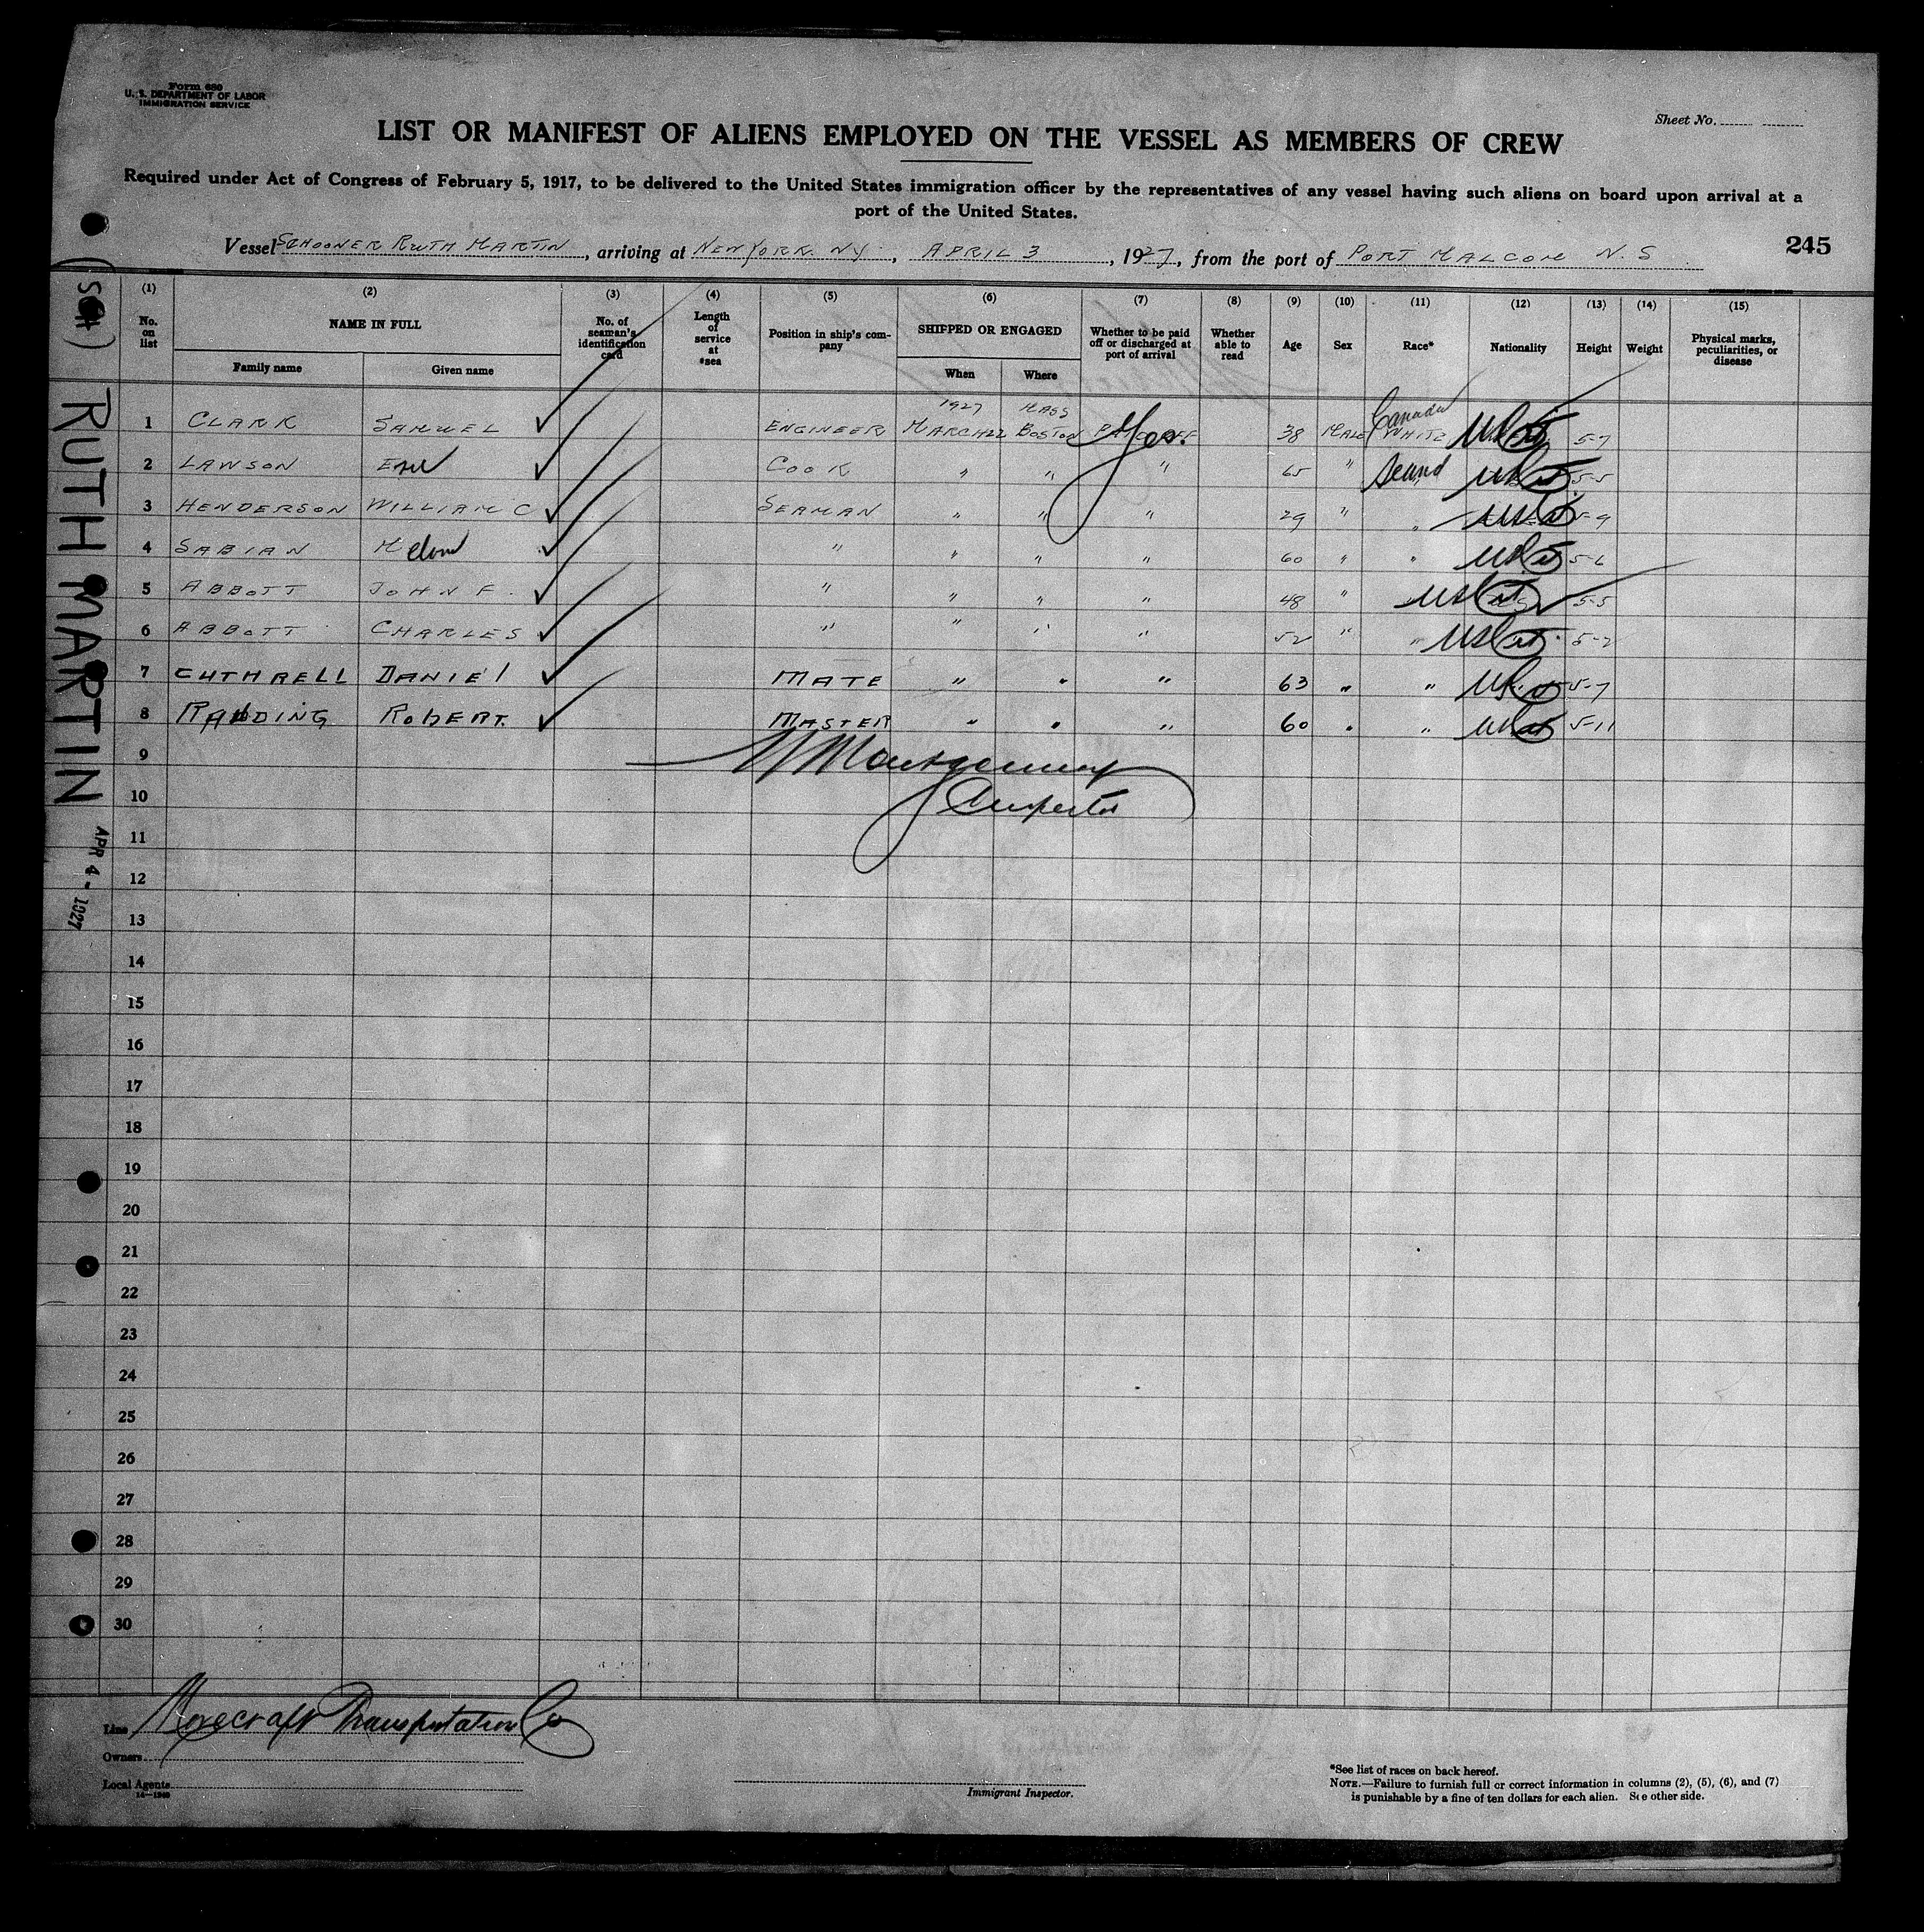 Form 680
U. S. DEPARTMENT OF LABOR
IMMIGRATION SERVICE
Sheet No.
LIST OR MANIFEST OF ALIENS EMPLOYED ON THE VESSEL AS MEMBERS OF CREW
Required under Act of Congress of February 5, 1917, to be delivered to the United States immigration officer by the representatives of any vessel having such aliens on board upon arrival at a
port of the United States.
245
Vessel SCHOONER RUTH MARTIN, arriving at NEW YORK NY, APRIL 3, 1927, from the port of PORT MALCOM N. S
(SCH) RUTH MARTIN APR 4 - 1927
(1) (2) (3) (4) (5) (6) (7) (8) (9) (10) (11) (12) (13) (14) (15)
No. on list NAME IN FULL No. of seaman's identification card Length of service at *sea Position in ship's company SHIPPED OR ENGAGED Whether to be paid off or discharged at port of arrival Whether able to read Age Sex Race* Nationality Height Weight Physical marks, peculiarities, or disease
Family name Given name When Where
1927 MASS Canada
1 CLARK SAMUEL ENGINEER MARCH 22 BOSTON Yes. 38 MALE WHITE 5-7
2 LAWSON COOK " " " 65 " Scand 5-5
3 HENDERSON WILLIAM C SEAMAN " " " 29 " " 5-9
4 SABIAN " " " " 60 " " 5-6
5 ABBOTT JOHN F. " " " " 48 " 5-5
6 ABBOTT CHARLES " " " " 52 " " 5-2
7 CUTHRELL DANIEl MATE " " " 63 " " 5-7
8 RobERT. MASTER " " " 60 " " 5-11
9 Montgomery
10 Inspector
11
12
13
14
15
16
17
18
19
20
21
22
23
24
25
26
27
28
29
30
Line Movecraft Transportation Co
Owners
Local Agents
14—1940
Immigrant Inspector.
*See list of races on back hereof.
NOTE.—Failure to furnish full or correct information in columns (2), (5), (6), and (7)
is punishable by a fine of ten dollars for each alien. See other side.